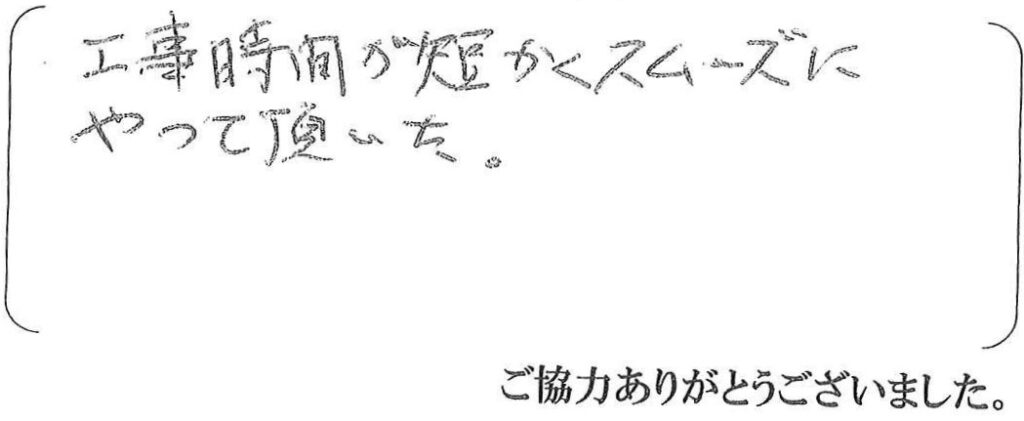 工事時間が短かくスムーズに
やって頂いた。
ご協力ありがとうございました。